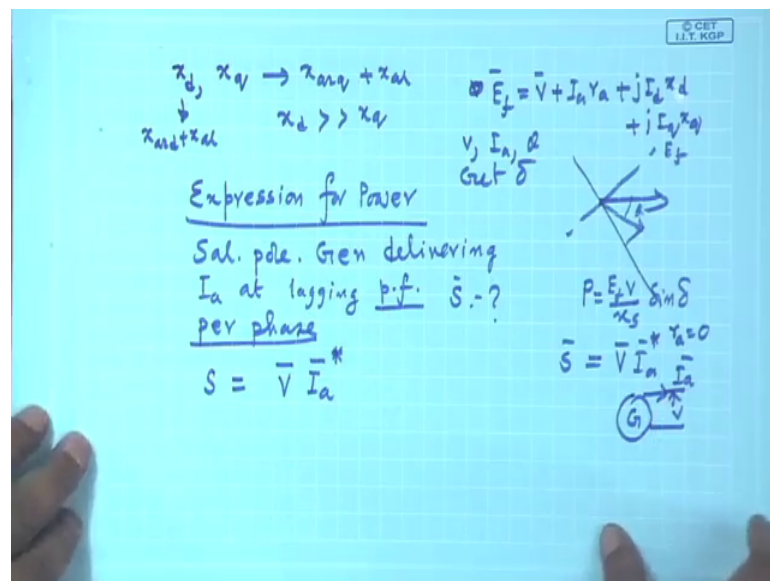 © CET
I.I.T. KGP
x_d, x_q → x_arq + x_al
↓
x_ard + x_al
x_d >> x_q
Ē_f = V̄ + I_a r_a + j I_d x_d
+ j I_q x_q
V, I_a, θ
Get δ
E_f
Expression for Power
Sal. pole. Gen delivering
I_a at lagging p.f. S̄ - ?
per phase
S = V̄ Ī_a*
P = E_f V / x_s sin δ
r_a = 0
S̄ = V̄ Ī_a*
Ī_a
G
V